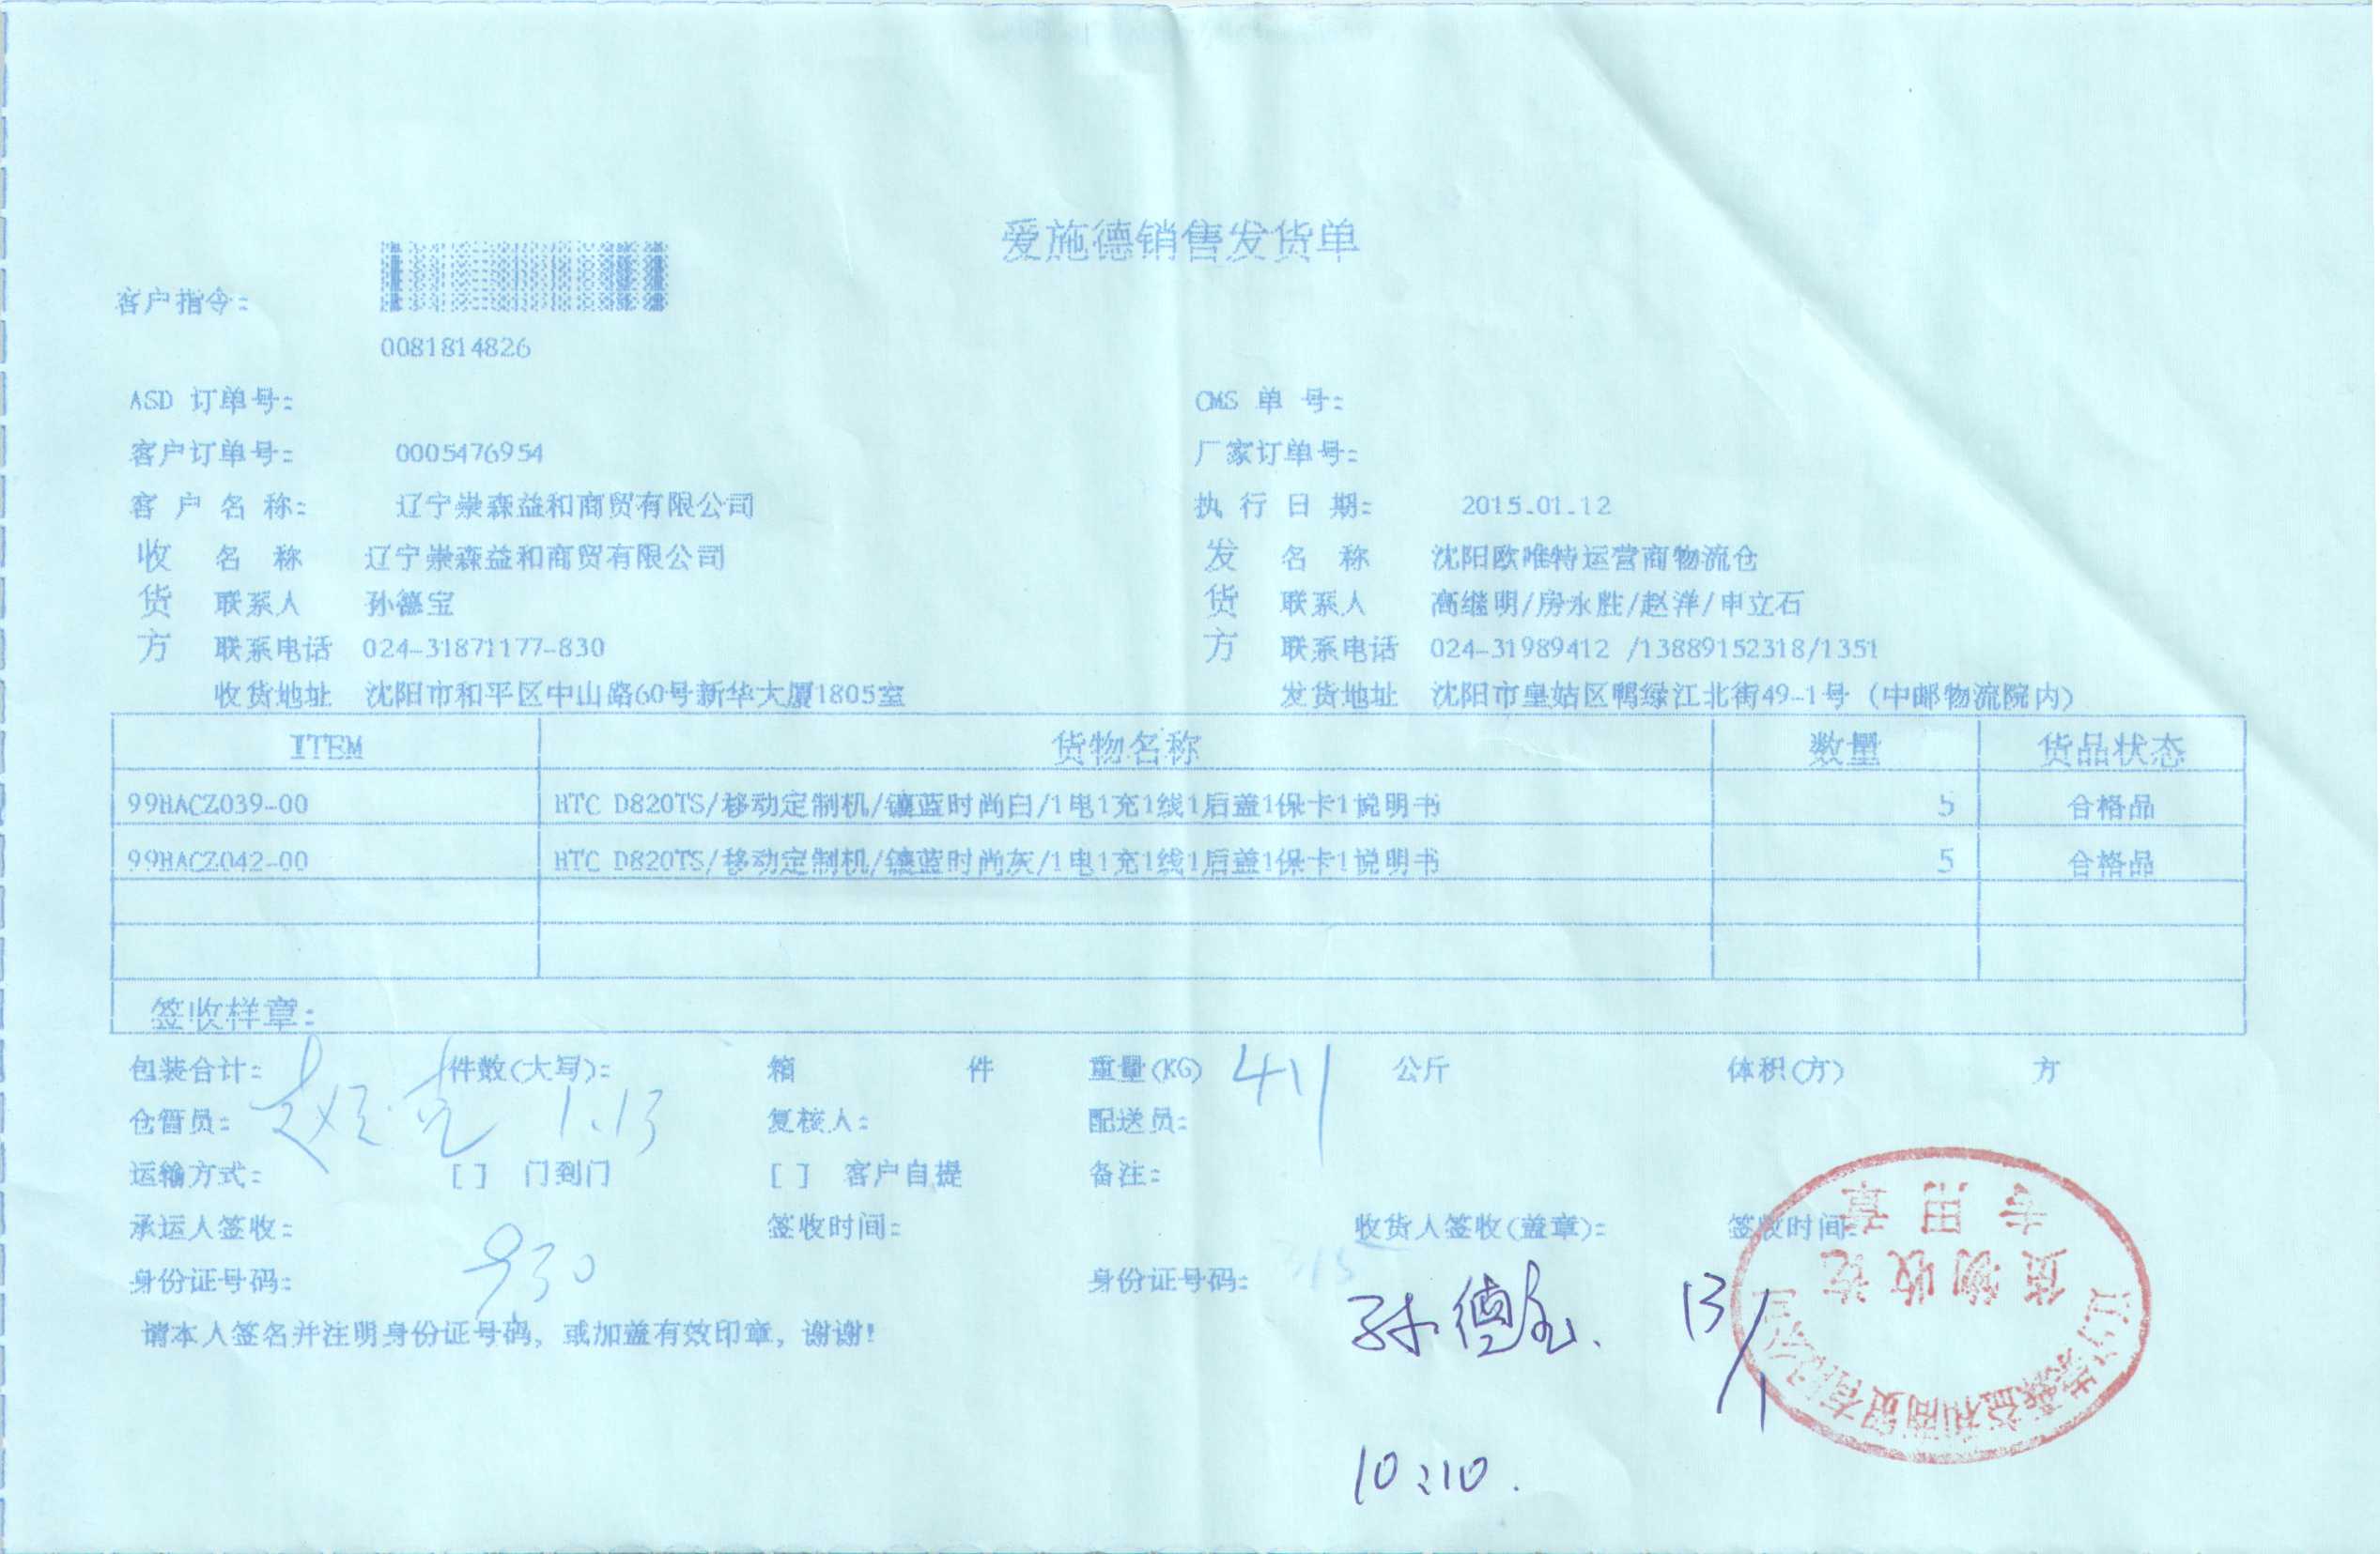 爱施德销售发货单
客户指令:
0081814826
ASD 订单号: CMS 单 号:
客户订单号: 0005476954 厂家订单号:
客 户 名 称: 辽宁崇森益和商贸有限公司 执 行 日 期: 2015.01.12
收货方 名 称 辽宁崇森益和商贸有限公司 发货方 名 称 沈阳欧唯特运营商物流仓
联系人 孙德宝 联系人 高继明/房永胜/赵洋/申立石
联系电话 024-31871177-830 联系电话 024-31989412 /13889152318/1351
收货地址 沈阳市和平区中山路60号新华大厦1805室 发货地址 沈阳市皇姑区鸭绿江北街49-1号 (中邮物流院内)
ITEM 货物名称 数量 货品状态
99HACZ039-00 HTC D820TS/移动定制机/镶蓝时尚白/1电1充1线1后盖1保卡1说明书 5 合格品
99HACZ042-00 HTC D820TS/移动定制机/镶蓝时尚灰/1电1充1线1后盖1保卡1说明书 5 合格品
签收样章:
包装合计: 件数(大写): 箱 件 重量(KG) 公斤 体积(方) 方
仓管员: 1.13 复核人: 配送员:
运输方式: [ ] 门到门 [ ] 客户自提 备注:
承运人签收: 签收时间: 收货人签收(盖章): 签收时间:
身份证号码: 930 身份证号码: 315
孙德宝. 13/1
请本人签名并注明身份证号码, 或加盖有效印章, 谢谢!
10:10.
辽宁崇森益和商贸有限公司
货物收讫
专用章